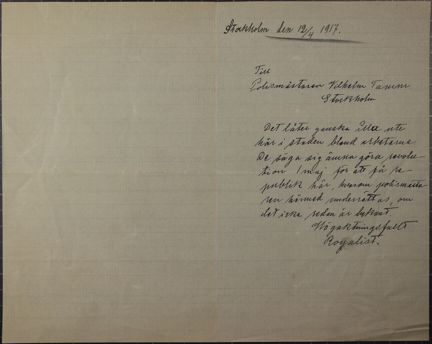 Stockholm den 12/4 1917.
Till
Polismästaren Vilhelm Tamm
Stockholm
Det låter ganska illa ute
här i staden bland arbetarne
De säga sig ämna göra revolu-
tion 1 maj för att få re-
publik här, hvarom polismästa
ren härmed underrättas, om
det icke redan är bekant.
Högaktningsfullt
Royalist.